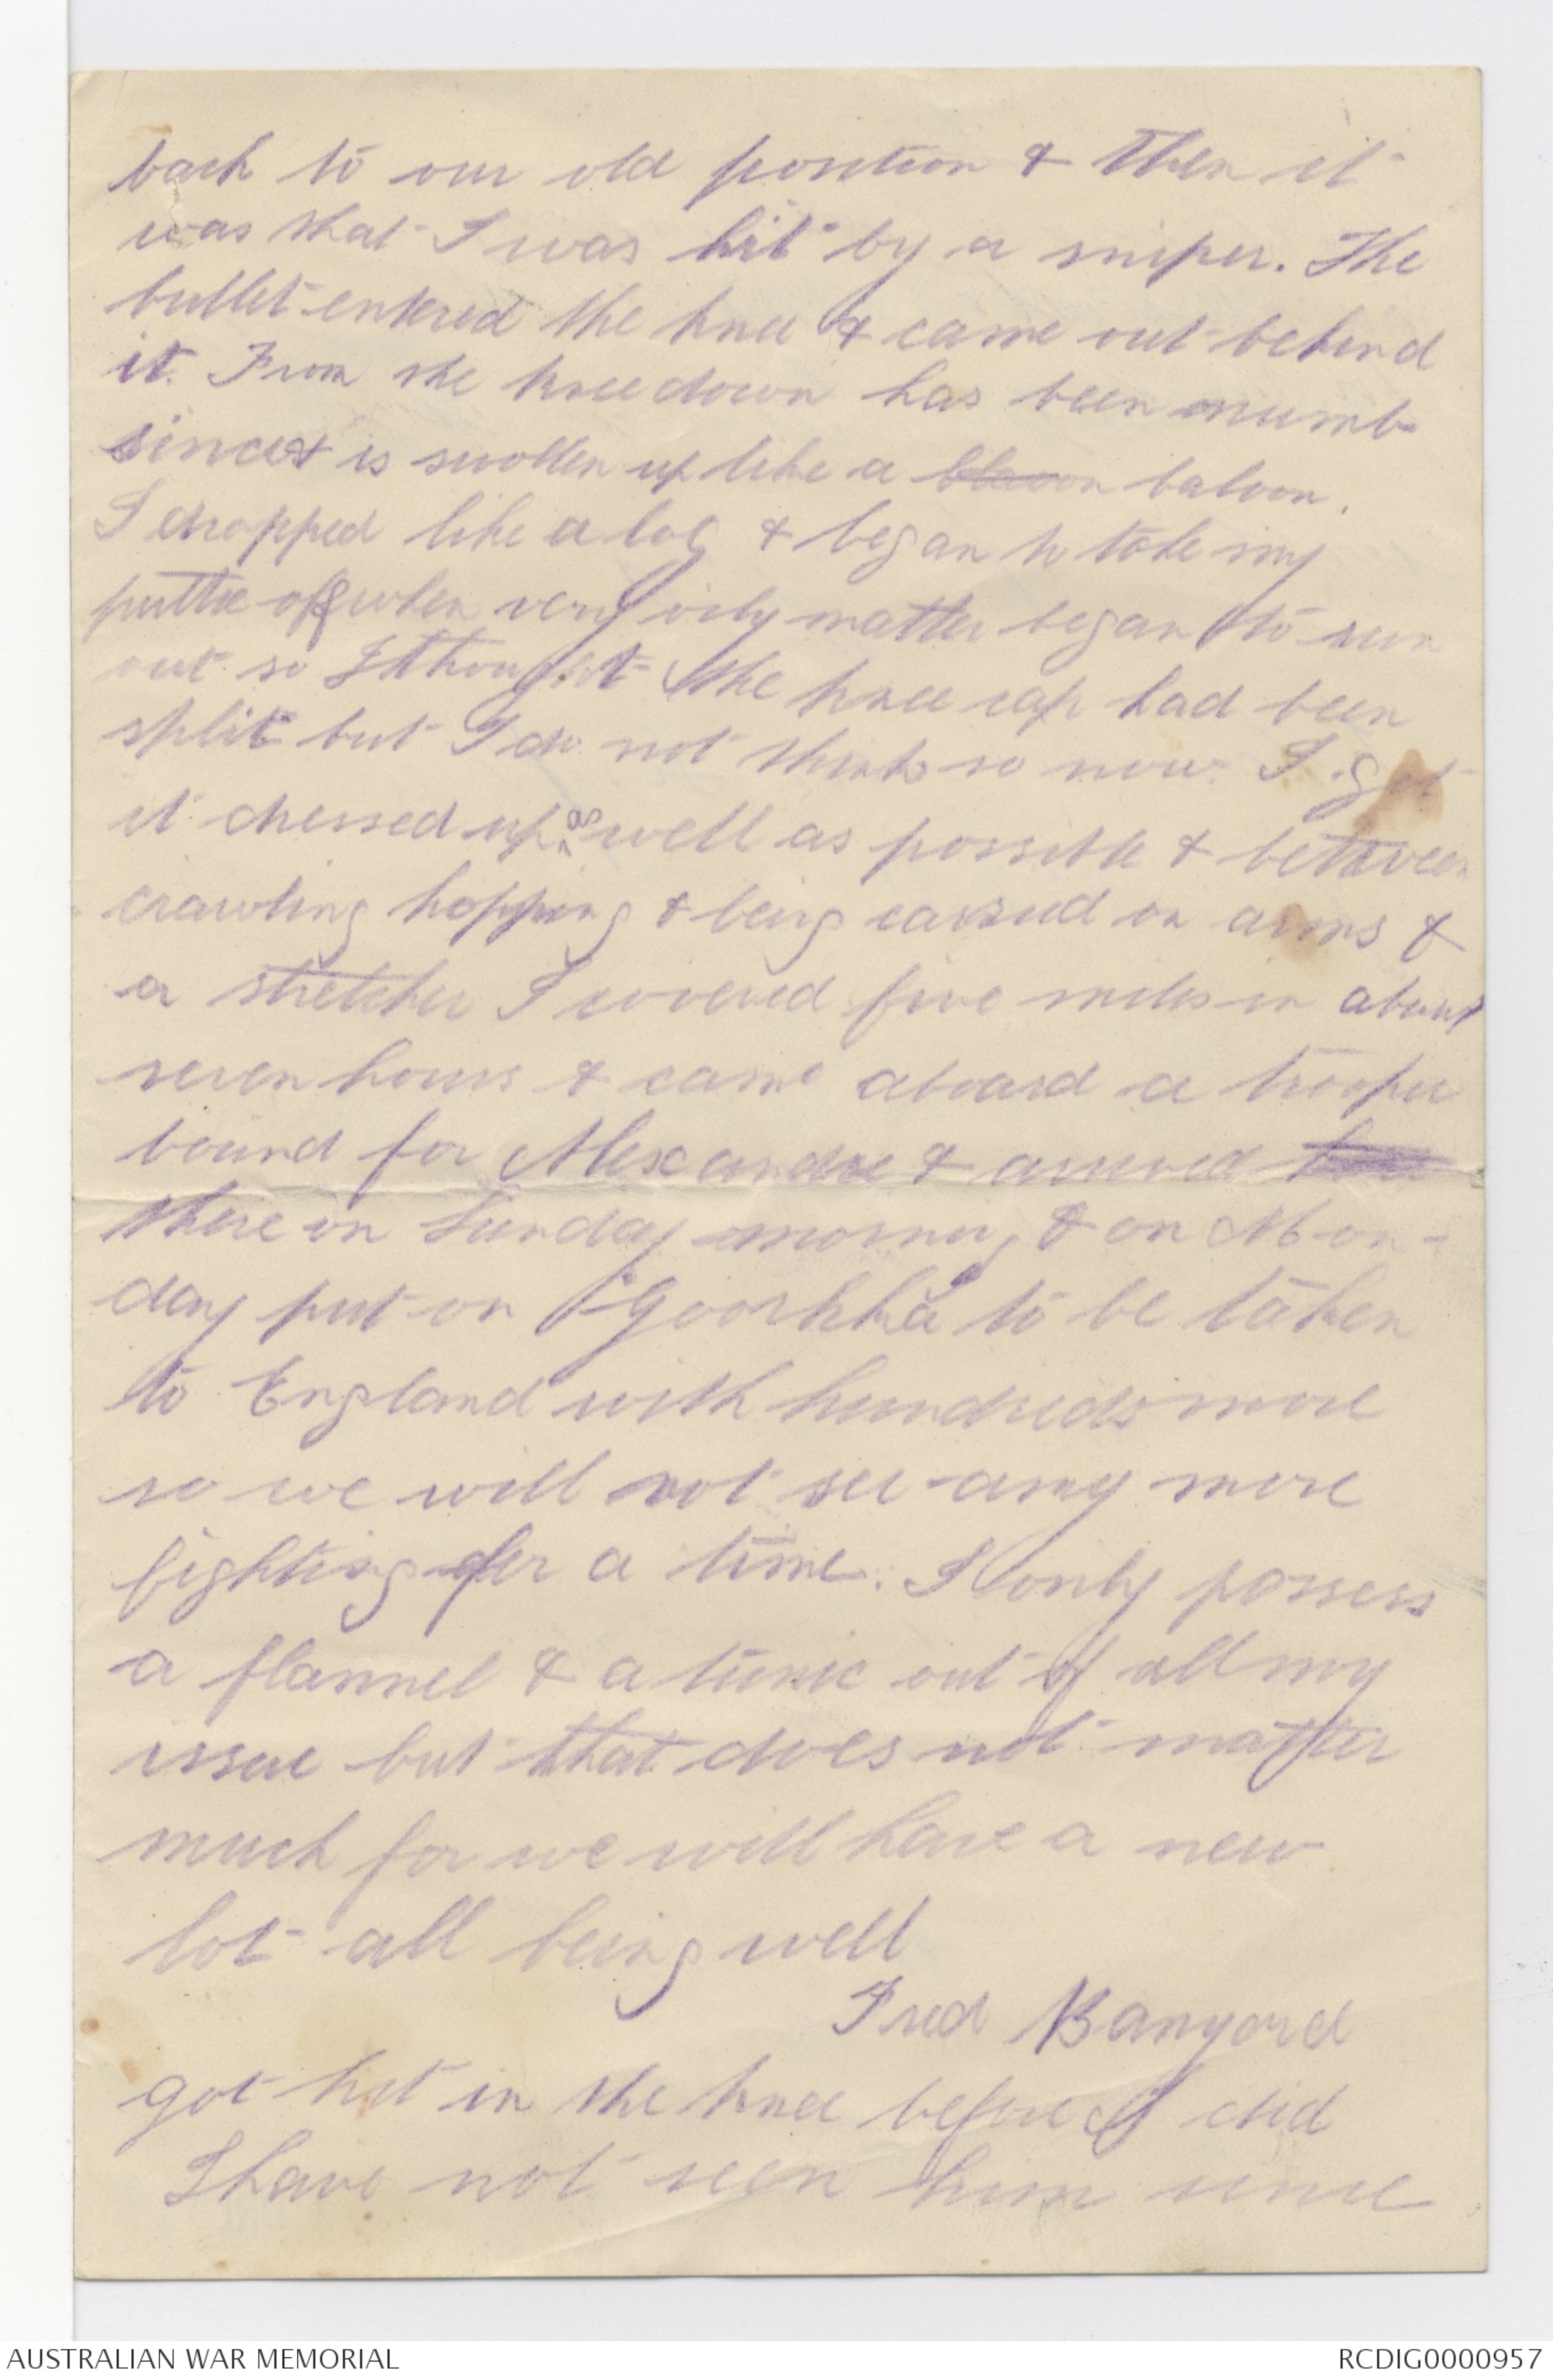 back to our old position & then it
was that I was hit by a sniper. The
bullet entered the knee & came out behind
it. From the knee down has been numb
since & is swollen up like a baloon.
I dropped like a log & began to take my
puttee off when very oily matter began to run
out so I thought the knee cap had been
split but I do not think so now. I got
it dressed up as well as possible & between
crawling hopping & being carried on arms &
a stretcher I covered five miles in about
seven hours & came aboard a trooper
bound for Alexandre & arrived
there on Sunday morning & on Mon-
day put on "Goorkha to be taken
to England with hundreds more
so we will not see any more
fighting for a time. I only possess
a flannel & a tunic out of all my
issue but that does not matter
much for we will have a new
lot all being well
Fred Banyard
got hit in the knee before I did
I have not seen him since
AUSTRALIAN WAR MEMORIAL
RCDIG0000957